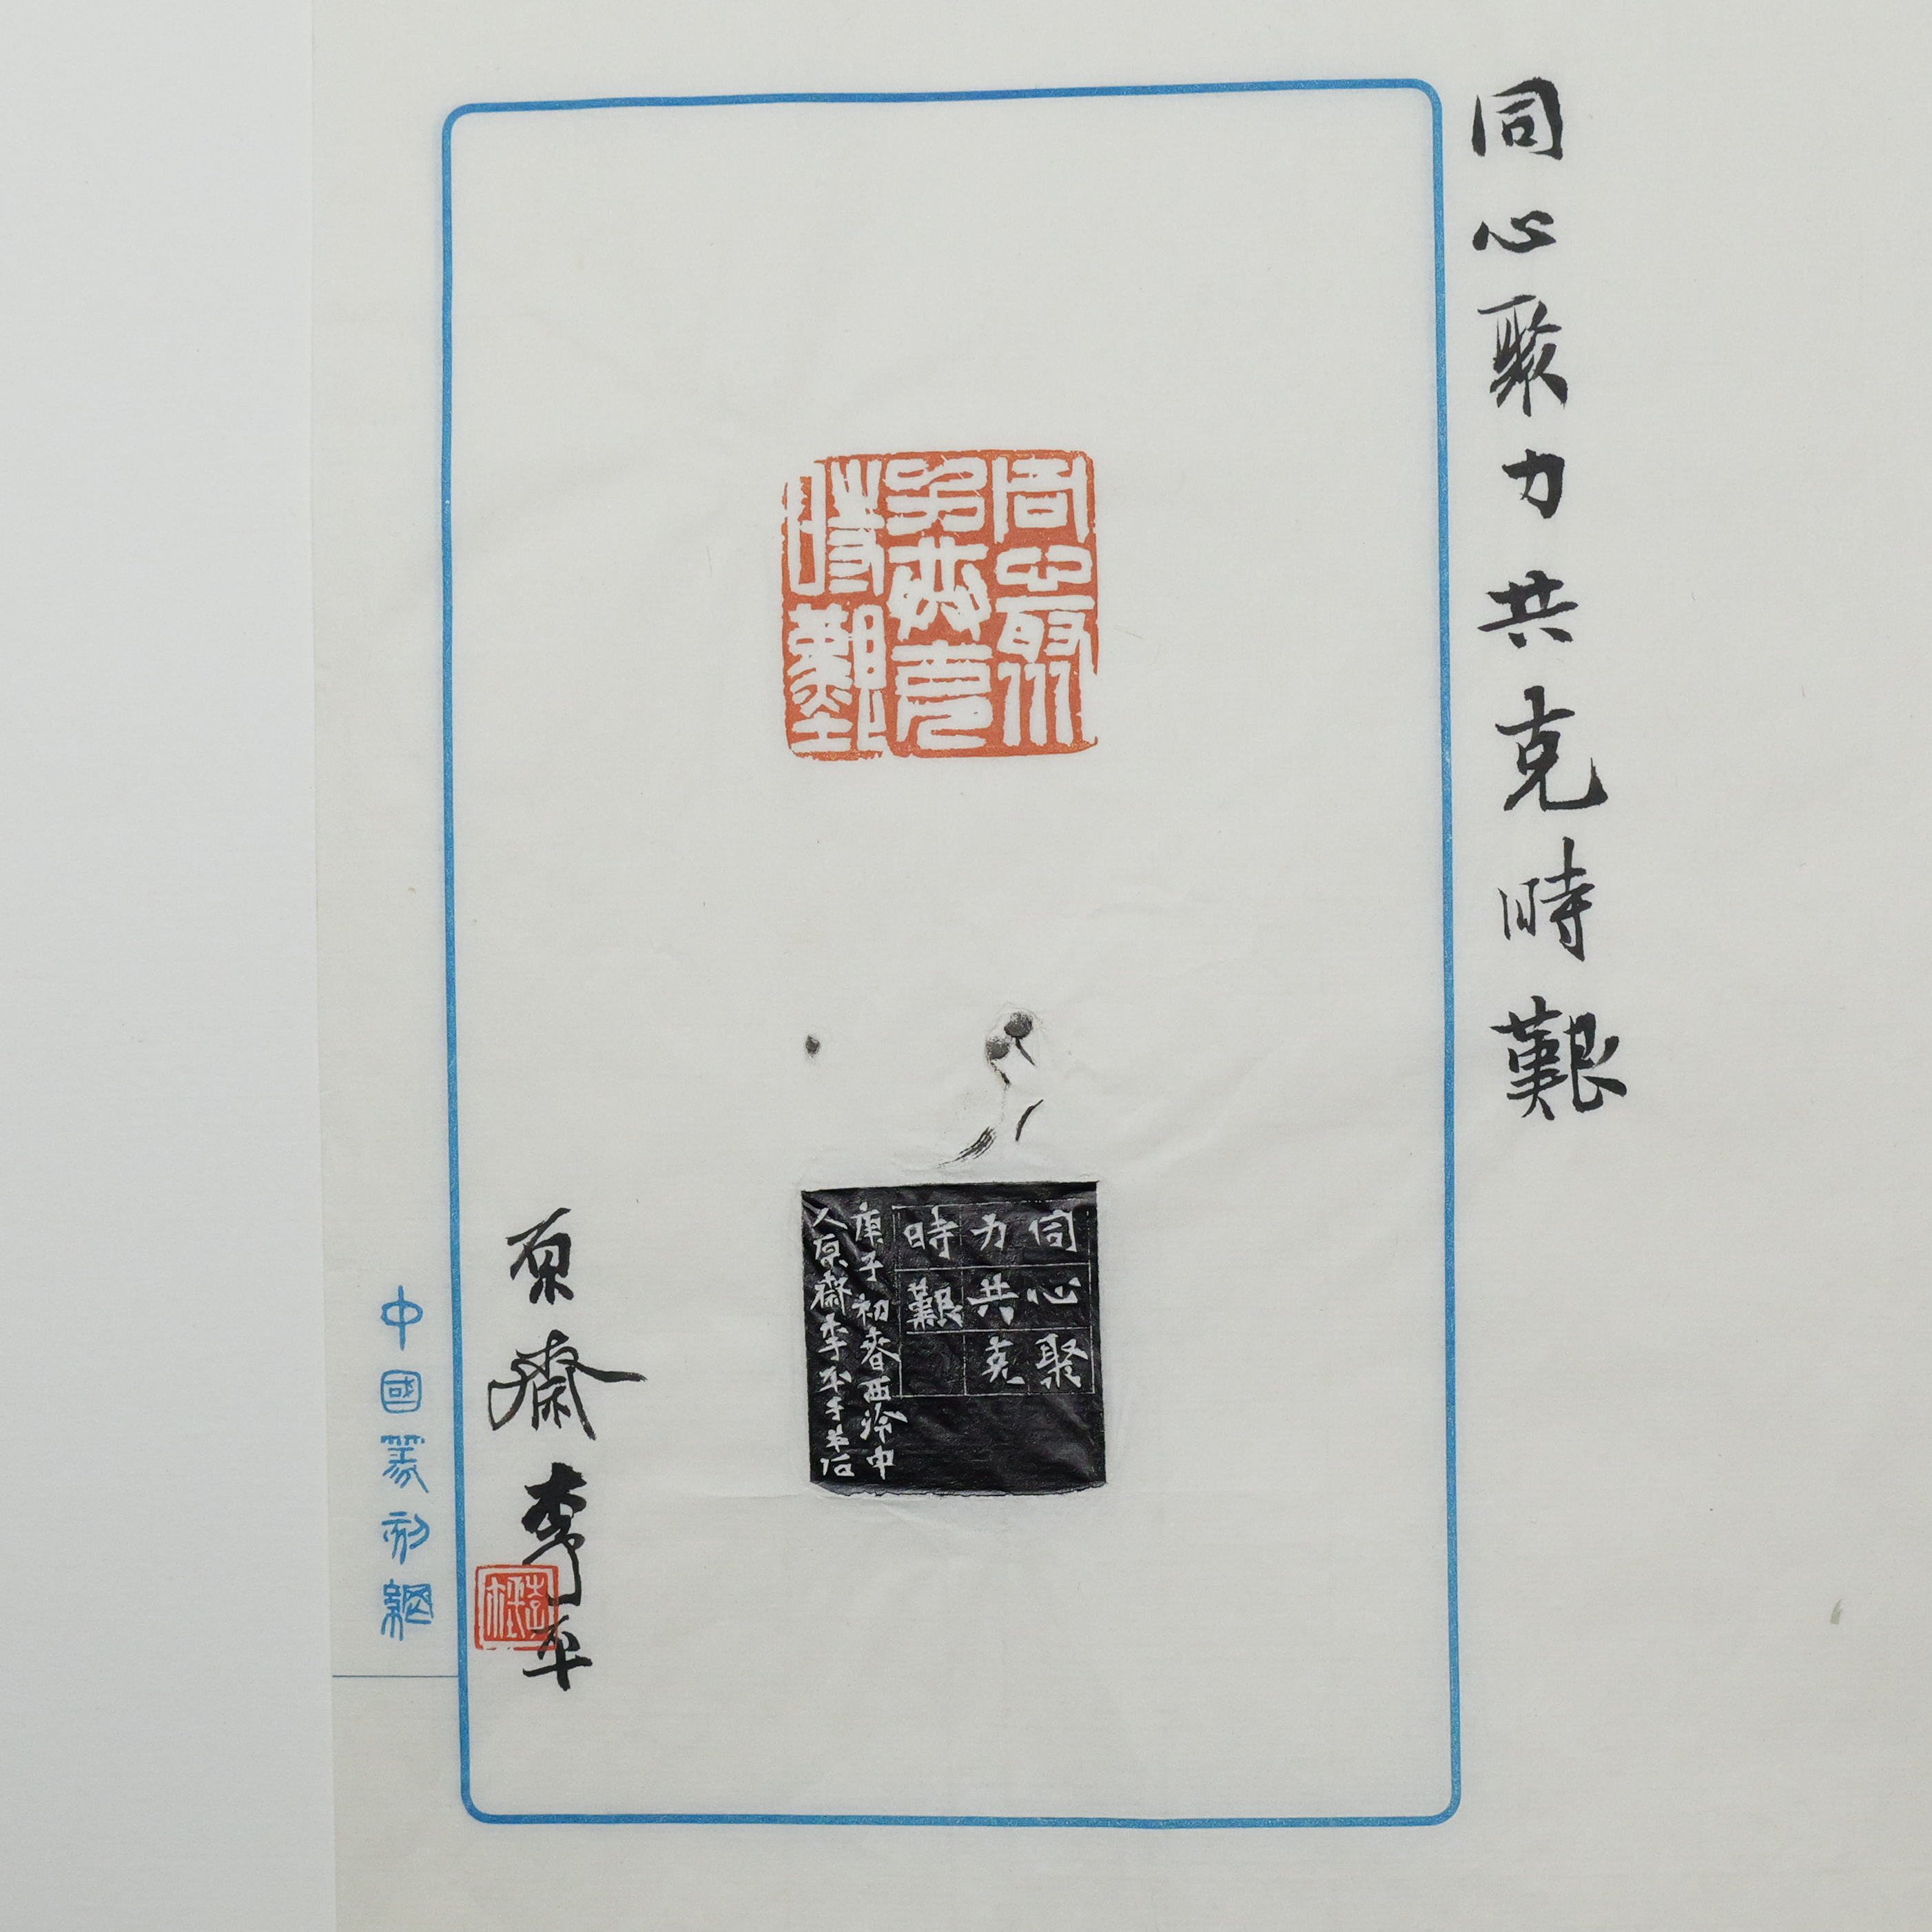 同心聚力共克時艱
同心聚
力共克
時艱
同心聚
力共克
時艱
庚子初春西泠中
人原齋李平
原齋李平
中國篆刻網